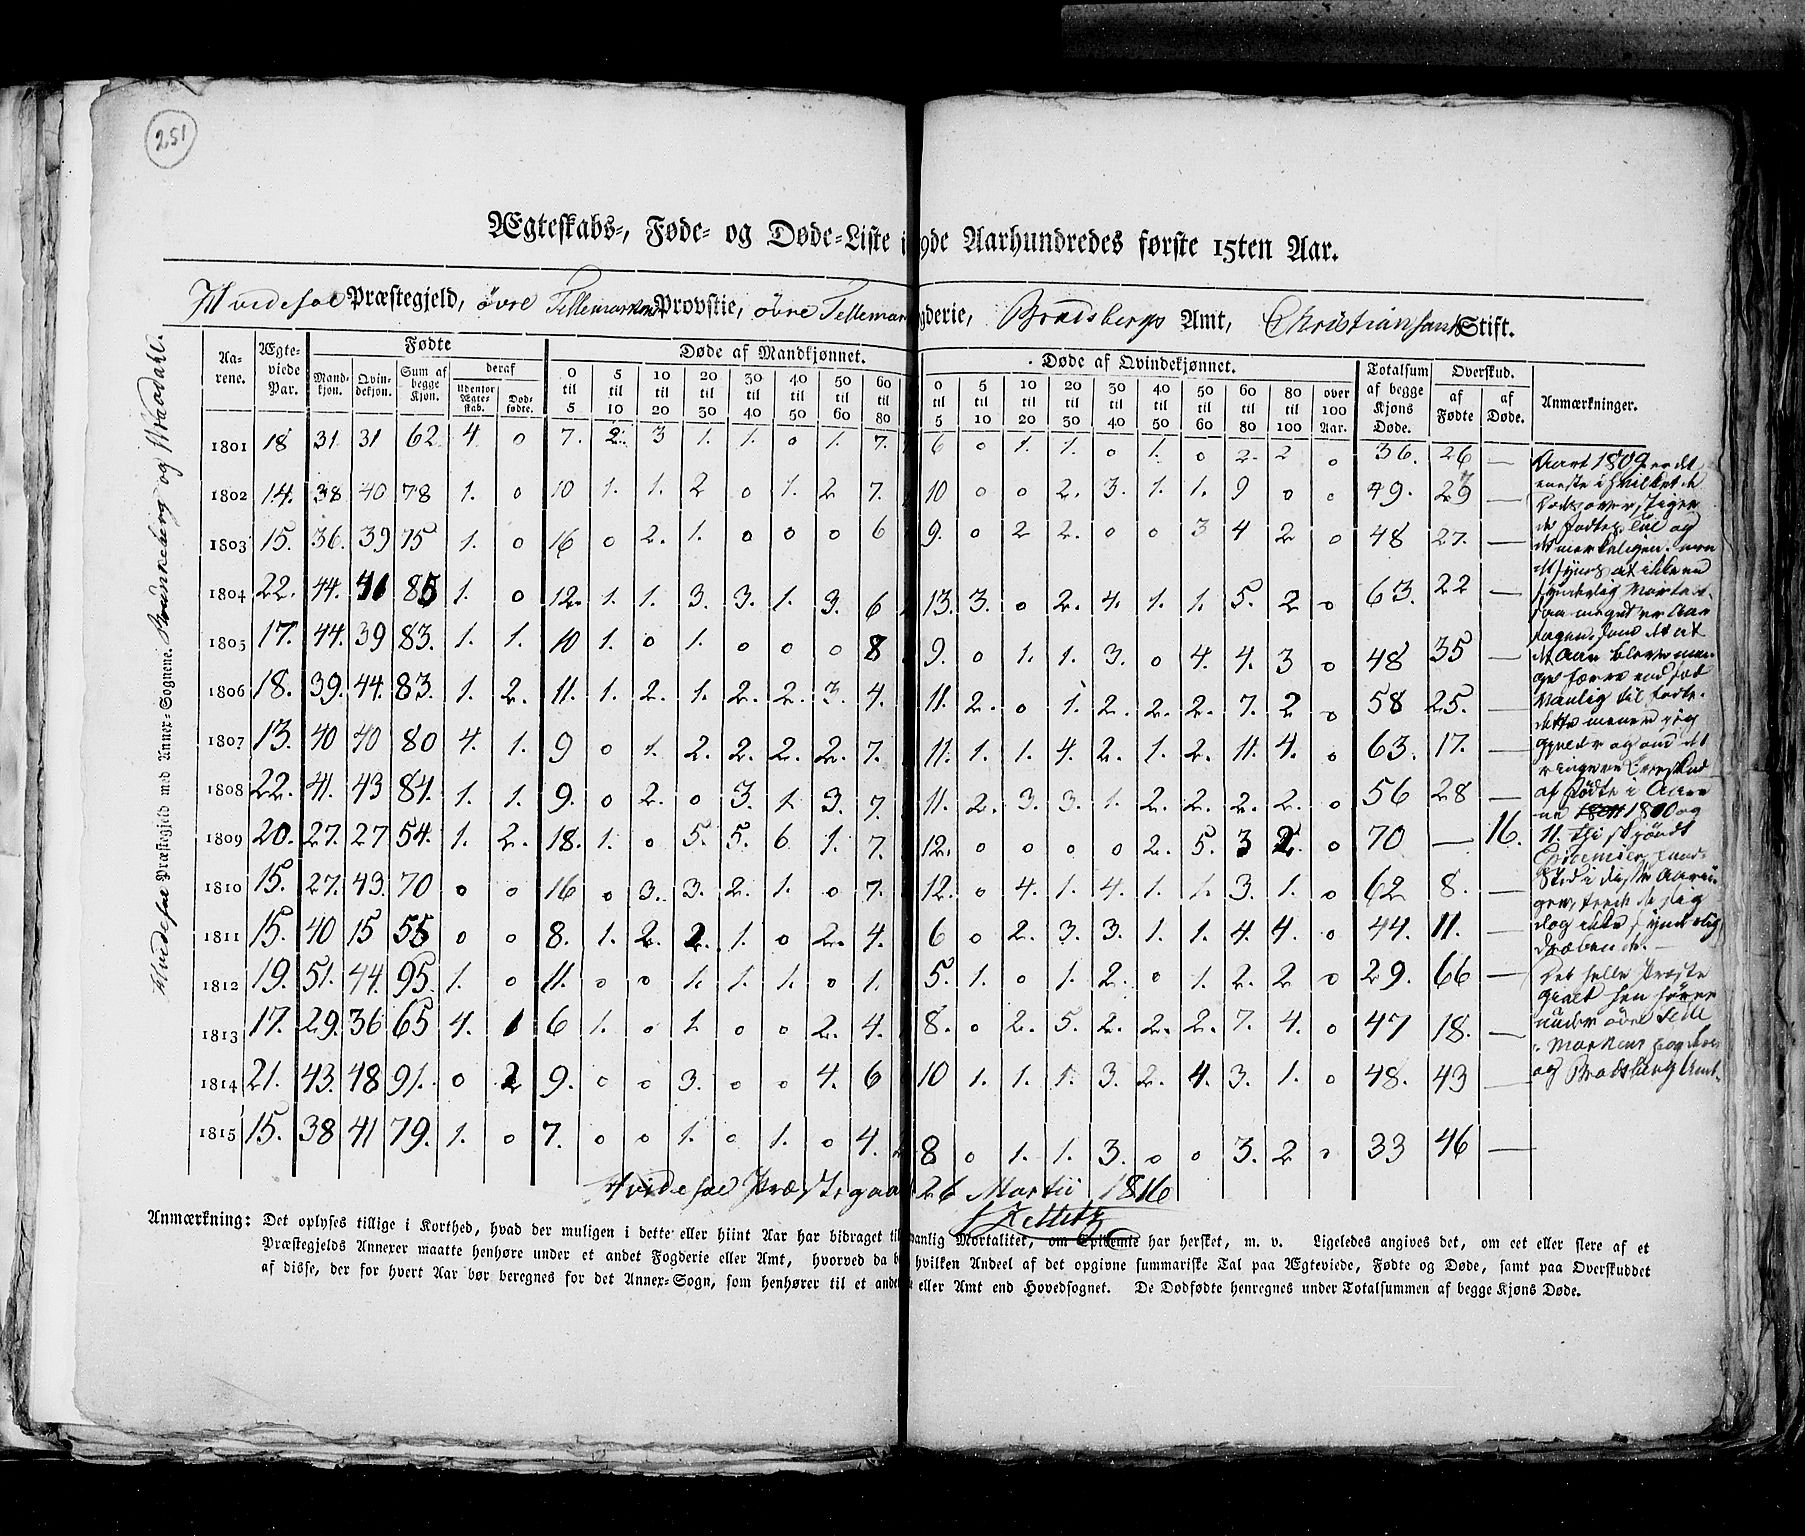 251
Ægteskabs-, Føde- og Døde-Liste i 19de Aarhundredes første 15ten Aar.
Hvidesøe Præstegjeld, øvre Tellemarken Provstie, øvre Tellemar gderie, Bradsbergs Amt, Christiansand Stift.
Hvidesøe Præstegjeld med Annex-Sognene. Brunkeberg og Wraadahl.
Aarene. Ægteviede Par. Fødte Døde af Mandkjønnet. Døde af Qvindekjønnet. Totalsum af begge Kjøns Døde. Overskud. Anmærkninger.
Mandkjøn. Qvindekjøn. Sum af begge Kjøn. deraf Udenfor Ægteskab. Dødfødte. 0 til 5 5 til 10 10 til 20 20 til 30 30 til 40 40 til 50 50 til 60 60 til 80 0 til 5 5 til 10 10 til 20 20 til 30 30 til 40 40 til 50 50 til 60 60 til 80 80 til 100 over 100 Aar. af Fødte af Døde.
1801 18 31 31 62 4. 0 7. 2. 3 1. 1. 0 1. 7. 6 0 1. 1. 0 1. 0 2. 2 0 36. 26 —
1802 14. 38. 40 78 1. 0 10 1. 1. 2 0 1. 2 7. 10 0 0 2. 3. 1. 1. 9 0 0 49. 29 —
1803 15. 36. 39 75 1. 0 16 0 2. 1. 0 0 0 6 9. 0 2 2. 0 0 3 4 2 0 48 27. —
1804 22. 44. 41 85 1. 0 12. 1. 1. 3. 3. 1. 3. 6 13. 3. 0 2. 4. 1. 1. 5. 2 0 63. 22 —
1805 17. 44. 39 83. 1. 1. 10 1. 0 1. 0 0 0 8 9. 0 1. 1. 3. 0 4. 4. 3 0 48 35 —
1806 18. 39. 44. 83. 1. 2. 11. 1. 2. 1. 2. 2. 3. 4. 11. 2. 0 1. 2. 2. 2. 7. 2 0 58 25. —
1807 13. 40 40 80 4. 1. 9 0 1. 2. 2. 2. 2. 7. 11. 1. 1. 4. 2. 1. 2. 11. 4. 0 63. 17. —
1808 22. 41. 43 84. 1. 1. 9. 0 2. 0 3. 1. 3. 7. 11. 2. 3. 3. 1. 2. 2. 2. 2. 0 56 28 —
1809 20. 27. 27 54. 1. 2. 18. 1. 0 5. 5. 6 1. 7. 12. 0 0 0 0 2. 5. 3 2. 0 70 — 16.
1810 15. 27. 43. 70 0 0 16 0 3. 3. 2. 1. 0 7. 12. 0 4. 1. 4. 1. 1. 3. 1. 0 62 8. —
1811 15. 40 15 55 0 0 8. 1. 2. 2. 1. 0 2. 4. 6 0 2. 3. 3. 1. 1. 4. 4. 0 44. 11. —
1812 19. 51. 44. 95. 1. 0 11. 0 0 1. 1. 1. 0 1. 5. 1. 0 1. 2. 0 1. 2. 2 0 29. 66 —
1813 17. 29. 36 65 4. 1 6 1. 0 1. 0 0 2. 4. 8. 0 2. 5. 2. 2. 2. 7. 4. 0 47 18. —
1814 21. 43. 48 91. 0 2 9. 0 0 3. 0 0 4. 6 10 1. 1. 1. 3. 2. 4. 3. 1. 0 48. 43 —
1815 15. 38 41 79. 1. 0 7. 0 0 1. 0 1. 0 4. 8 0 1. 1. 3. 0 0 3. 2 0 33 46 —
Aaret 1809 er det
eneste i hvilket de
Dødes overstiger
de Fødtes Tal og
det merkeligen. men
det synes at ikke en
synderlig Mortal-
saa meget er Aar
sagen, som det at
det Aar bleve man
ge færre end sæd
vanlig til fødte.
dette mener jeg
gjelder og om det
ringere Overskud
af Fødte i Aare
ne 1810 og
11. thi skjøndt
Epidemier fandt
Sted i disse Aarin
ger, troede de sig
dog ikke synderlig
dræbende. —
Det hele Præste
gield hen hører
under øvre Telle
Markens Fogderie
og Bradsberg Amt.
Hvidesøe Præstegaa 26 Martii 1816
Anmærkning: Det oplyses tillige i Korthed, hvad der muligen i dette eller hiint Aar har bidraget til vanlig Mortalitet, om Epidemie har hersket, m. v. Ligeledes angives det, om eet eller flere af et
Præstegjelds Annexer maatte henhøre under et andet Fogderie eller Amt, hvorved da b hvilken Andeel af det opgivne summariske Tal paa Ægteviede, Fødte og Døde, samt paa Overskuddet
af disse, der for hvert Aar bør beregnes for det Annex-Sogn, som henhører til et andet eller Amt end Hovedsognet. De Dødfødte henregnes under Totalsummen af begge Kjøns Døde.